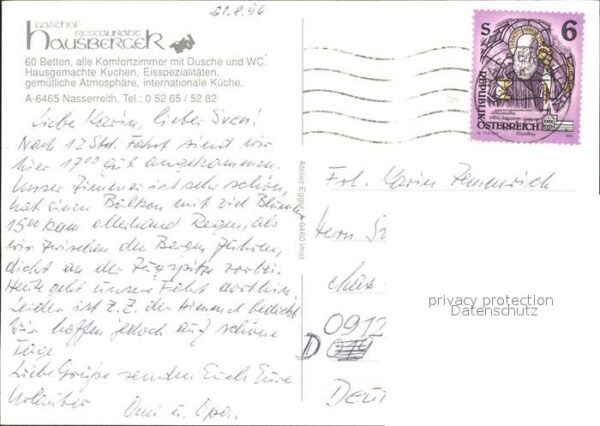 21.8.96
GASTHOF
RESTAURANT
HAUSBERGER
60 Betten, alle Komfortzimmer mit Dusche und WC.
Hausgemachte Kuchen, Eisspezialitäten,
gemütliche Atmosphäre, internationale Küche.
A-6465 Nassereith, Tel.: 0 52 65 / 52 82
Liebe Karin, lieber Sven!
Nach 12 Std. Fahrt sind wir
hier 17⁰⁰ gut angekommen.
Unser Zimmer ist sehr schön,
hat einen Balkon mit viel Blumen
15⁰⁰ kam allerhand Regen, als
wir zwischen den Bergen fuhren,
dicht an der Zugspitze vorbei.
Heute geht unsere Fahrt dorthin.
Leider ist z.Z. der Himmel bedeckt
Wir hoffen jedoch auf schöne
Tage
Liebe Grüße senden Euch Eure
Urlauber Omi u. Opa.
Atelier Egger, 6460 Imst
S 6
REPUBLIK
ÖSTERREICH
Frl. Karin
Herrn
0912
D
privacy protection
Datenschutz